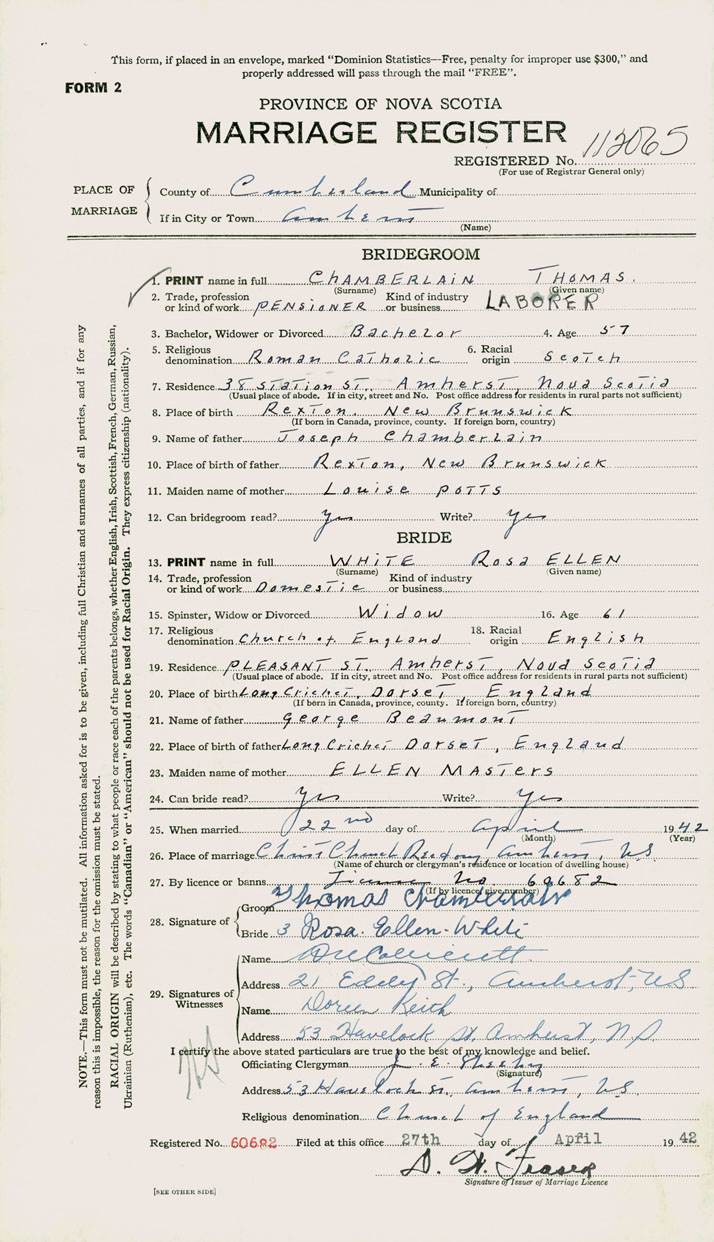 This form, if placed in an envelope, marked "Dominion Statistics—Free, penalty for improper use $300," and
properly addressed will pass through the mail "FREE".
FORM 2
PROVINCE OF NOVA SCOTIA
MARRIAGE REGISTER
REGISTERED No. 112065
(For use of Registrar General only)
PLACE OF MARRIAGE
County of Cumberland Municipality of
If in City or Town Amherst
(Name)
BRIDEGROOM
1. PRINT name in full CHAMBERLAIN THOMAS.
(Surname) (Given name)
2. Trade, profession or kind of work PENSIONER Kind of industry or business LABORER
3. Bachelor, Widower or Divorced Bachelor 4. Age 57
5. Religious denomination Roman Catholic 6. Racial origin Scotch
7. Residence 38 Station St. Amherst, Nova Scotia
(Usual place of abode. If in city, street and No. Post office address for residents in rural parts not sufficient)
8. Place of birth Rexton. New Brunswick
(If born in Canada, province, county. If foreign born, country)
9. Name of father Joseph Chamberlain
10. Place of birth of father Rexton, New Brunswick
11. Maiden name of mother Louise Potts
12. Can bridegroom read? Yes Write? Yes
BRIDE
13. PRINT name in full WHITE Rosa ELLEN
(Surname) (Given name)
14. Trade, profession or kind of work Domestic Kind of industry or business
15. Spinster, Widow or Divorced Widow 16. Age 61
17. Religious denomination Church of England 18. Racial origin English
19. Residence PLEASANT ST. Amherst, Nova Scotia
(Usual place of abode. If in city, street and No. Post office address for residents in rural parts not sufficient)
20. Place of birth Long Crichel, Dorset, England
(If born in Canada, province, county. If foreign born, country)
21. Name of father George Beaumont
22. Place of birth of father Long Crichel Dorset, England
23. Maiden name of mother ELLEN MASTERS
24. Can bride read? Yes Write? Yes
25. When married 22nd day of April 1942
(Month) (Year)
26. Place of marriage Christ Church Rectory, Amherst, N.S.
(Name of church or clergyman's residence or location of dwelling house)
27. By licence or banns License No. 60682
(If by licence give number)
28. Signature of
Groom Thomas Chamberlain
Bride 3 Rosa. Ellen-White
29. Signatures of Witnesses
Name
Address 21 Eddy St., Amherst, N.S.
Name Doris Keith
Address 53 Havelock St. Amherst, N.S.
I certify the above stated particulars are true to the best of my knowledge and belief.
Officiating Clergyman J. E.
(Signature)
Address 53 Havelock St., Amherst, N.S.
Religious denomination Church of England
Registered No. 60682 Filed at this office 27th day of April 1942
D. W. Fraser
Signature of Issuer of Marriage Licence
[SEE OTHER SIDE]
NOTE.—This form must not be mutilated. All information asked for is to be given, including full Christian and surnames of all parties, and if for any
reason this is impossible, the reason for the omission must be stated.
RACIAL ORIGIN will be described by stating to what people or race each of the parents belongs, whether English, Irish, Scottish, French, German, Russian,
Ukrainian (Ruthenian), etc. The words "Canadian" or "American" should not be used for Racial Origin. They express citizenship (nationality).